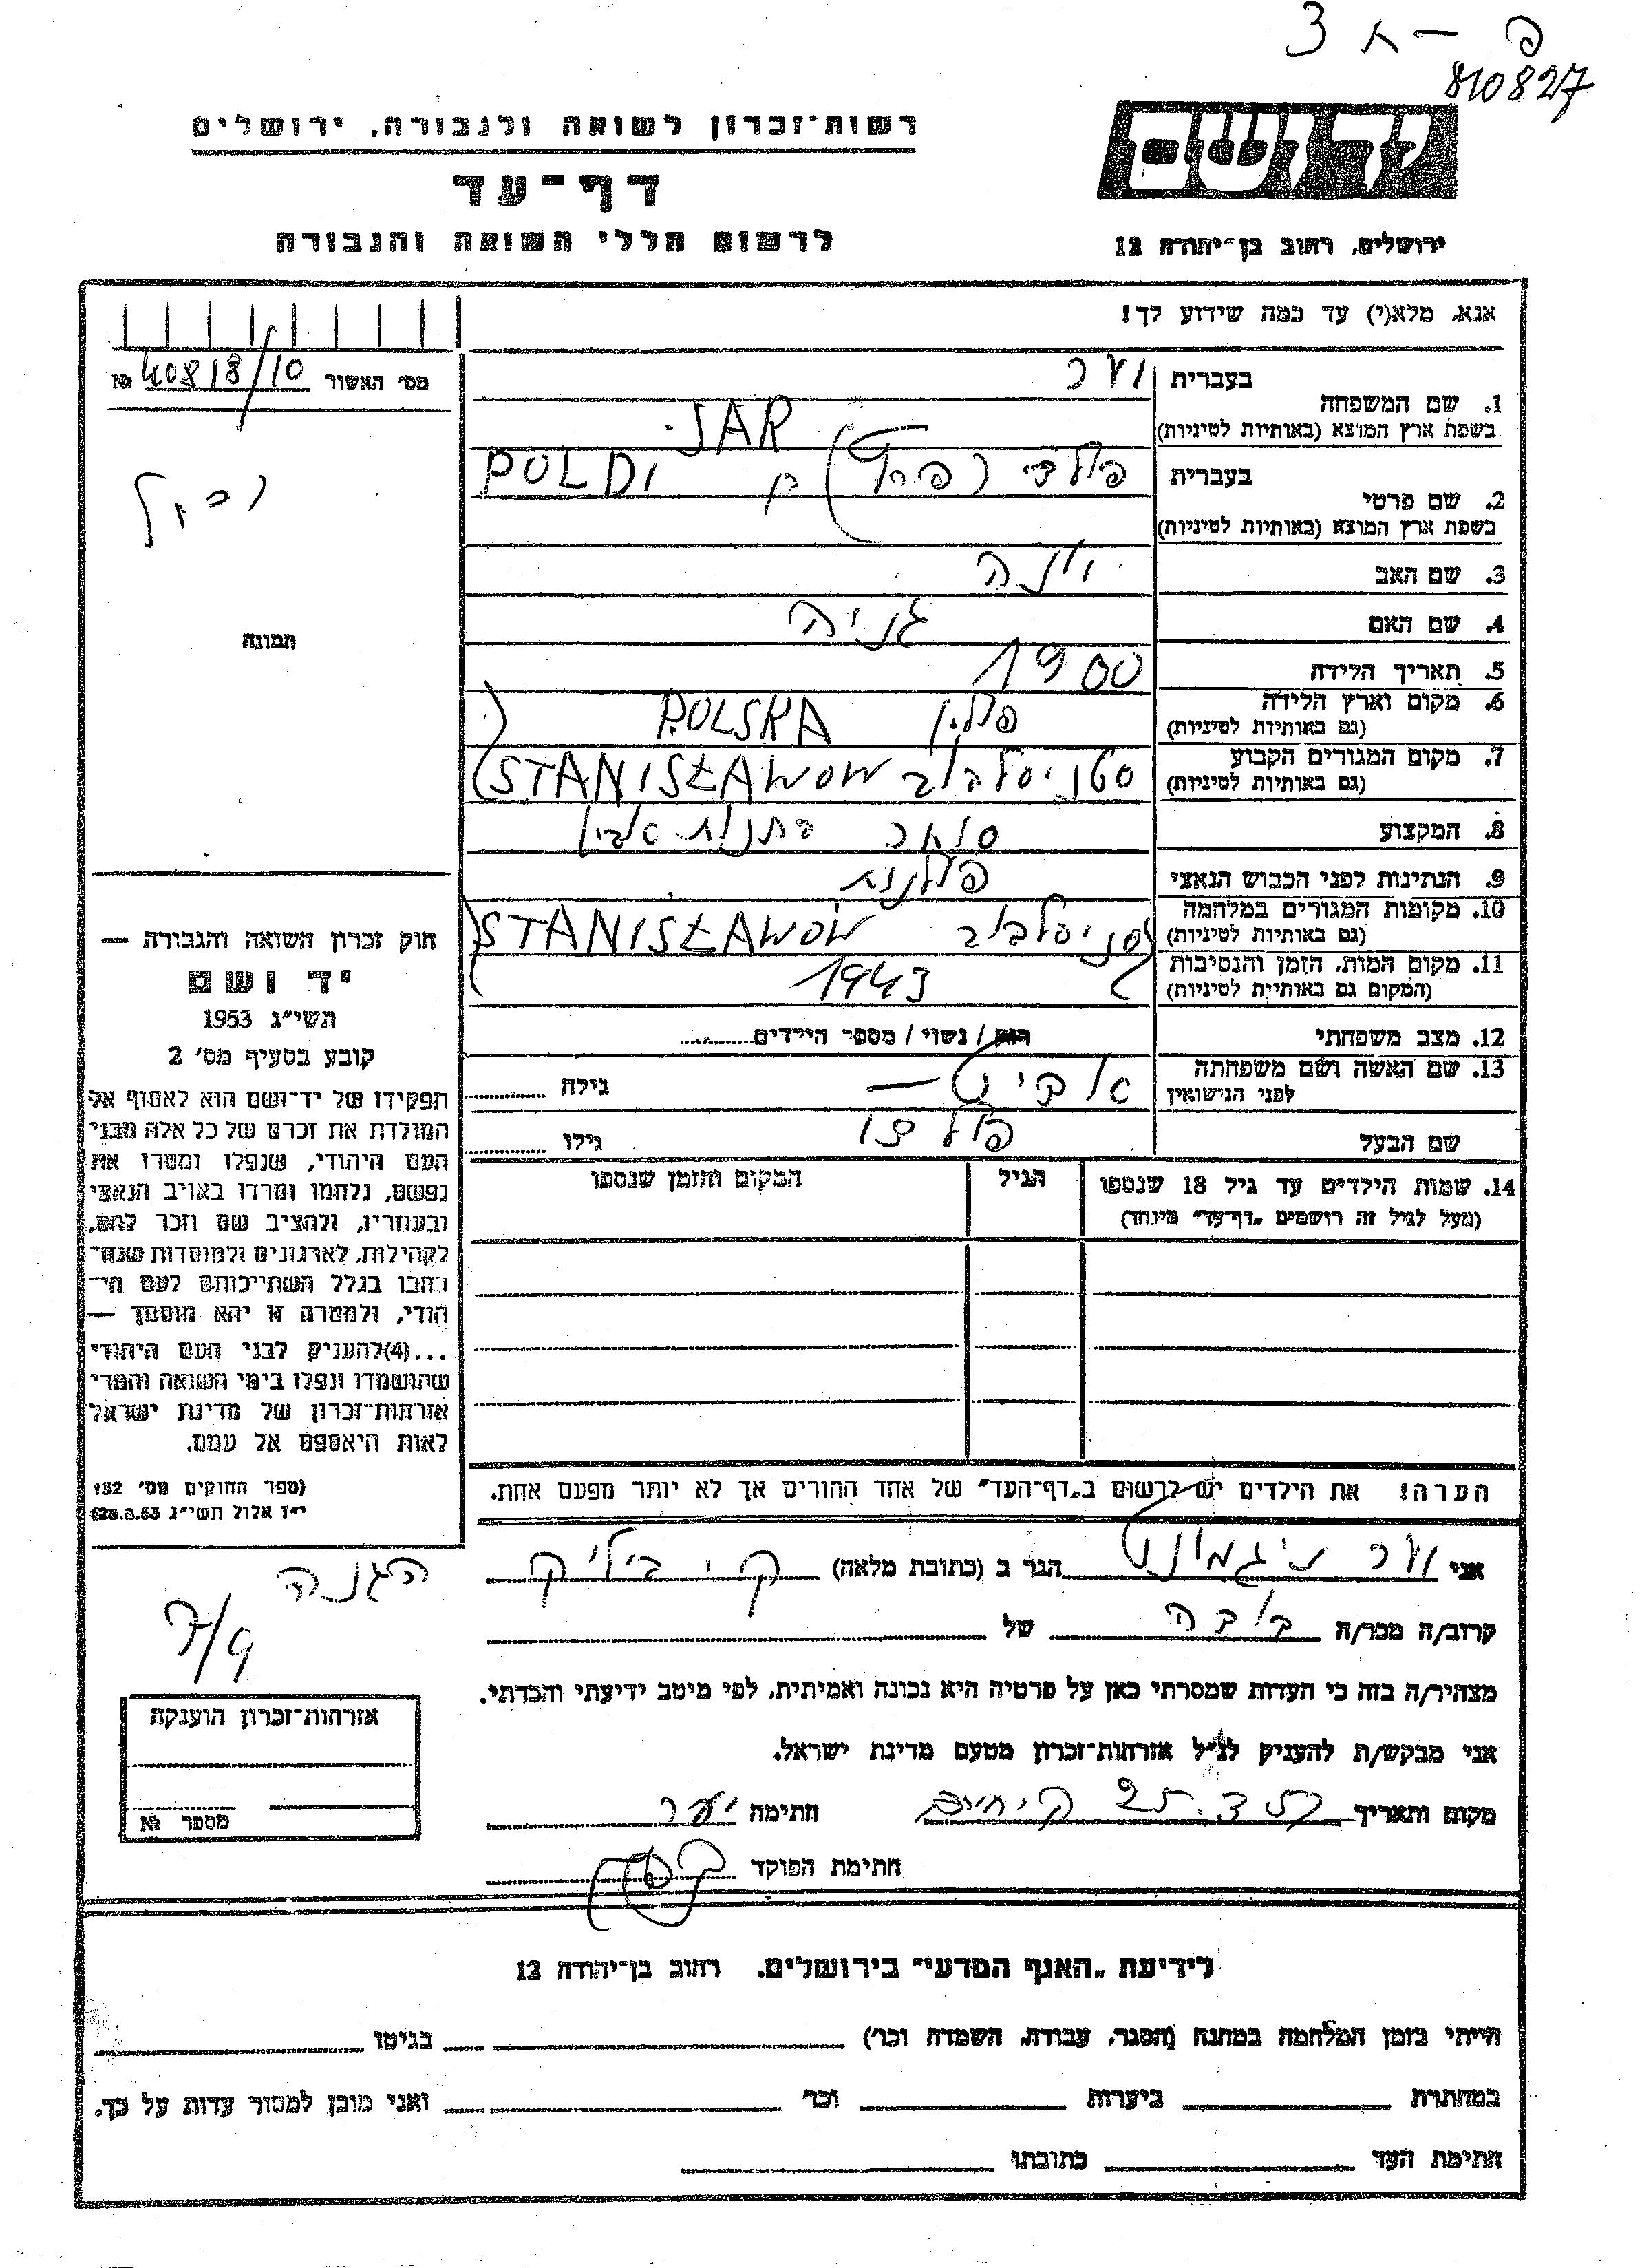 810827
רשות־זכרון לשואה ולגבורה, ירושלים
יד ושם
דף־עד
לרשום חללי השואה והגבורה
ירושלים, רחוב בן־יהודה 12
אנא, מלא(י) עד כמה שידוע לך!
מס׳ האשור № 40818/10
1. שם המשפחה
בעברית יער
בשפת ארץ המוצא (באותיות לטיניות) JAR
2. שם פרטי
בעברית פולדי POLDI
בשפת ארץ המוצא (באותיות לטיניות)
3. שם האב יונה
4. שם האם גניה
תמונה
5. תאריך הלידה 1900
6. מקום וארץ הלידה פולין POLSKA
(גם באותיות לטיניות)
7. מקום המגורים הקבוע סטניסלבוב STANISŁAWOW
(גם באותיות לטיניות)
8. המקצוע סוחר
9. הנתינות לפני הכבוש הנאצי פולנית
10. מקומות המגורים במלחמה סניסלבוב STANISŁAWÓW
(גם באותיות לטיניות)
11. מקום המות, הזמן והנסיבות 1943
(המקום גם באותיות לטיניות)
12. מצב משפחתי רווק / נשוי / מספר הילדים
13. שם האשה ושם משפחתה גילה
לפני הנישואין
שם הבעל פולדי גילו
14. שמות הילדים עד גיל 18 שנספו הגיל המקום והזמן שנספו
(מעל לגיל זה רושמים „דף־עד״ מיוחד)
חוק זכרון השואה והגבורה —
יד ושם
תשי״ג 1953
קובע בסעיף מס׳ 2
תפקידו של יד־ושם הוא לאסוף אל
המולדת את זכרם של כל אלה מבני
העם היהודי, שנפלו ומסרו את
נפשם, נלחמו ומרדו באויב הנאצי
ובעוזריו, ולהציב שם וזכר להם,
לקהילות, לארגונים ולמוסדות שנח־
רבו בגלל השתייכותם לעם הי־
הודי, ולמטרה זו יהא מוסמך —
...(4)להעניק לבני העם היהודי
שהושמדו ונפלו בימי השואה והמרי
אזרחות־זכרון של מדינת ישראל
לאות היאספם אל עמם.
(ספר החוקים מס׳ 132
י״ז אלול תשי״ג 28.8.53)
הערה! את הילדים יש לרשום ב„דף־העד״ של אחד ההורים אך לא יותר מפעם אחת.
אני יער זיגמונט הגר ב (כתובת מלאה) ק. ביאליק
הגנה
7/9
קרוב/ה מכר/ה של
מצהיר/ה בזה כי העדות שמסרתי כאן על פרטיה היא נכונה ואמיתית, לפי מיטב ידיעתי והכרתי.
אני מבקש/ת להעניק לנ״ל אזרחות־זכרון מטעם מדינת ישראל.
מקום ותאריך חתימה יער
חתימת הפוקד
אזרחות־זכרון הוענקה
מספר №
לידיעת „האגף המדעי״ בירושלים. רחוב בן־יהודה 12
הייתי בזמן המלחמה במחנה (הסגר, עבודה, השמדה וכו׳) בגיטו
במחתרת ביערות וכו׳ ואני מוכן למסור עדות על כך.
חתימת העד כתובתו